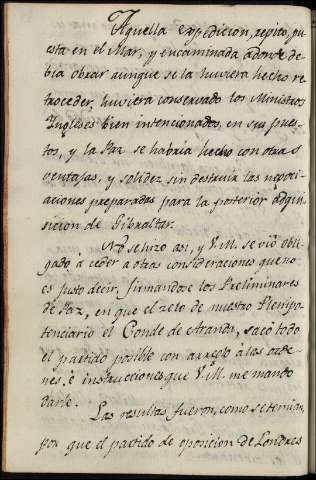 Aquella expedicion, repito, pu
esta en el Mar, y encaminada adonde de
bia obrar aunque se la huviera hecho re
troceder, huviera conservado los Ministros
Ingleses bien intencionados, en sus pues
tos, y la Paz se habria hecho con otras
ventajas, y solidez sin destruir las negoci
aciones preparadas para la posterior adqui
sicion de Gibraltar.
No se hizo asi, y V.M. se vió obli
gado à ceder a otras consideraciones que no
es justo decir, firmandose los Preliminares
de Paz, en que el zelo de nuestro Plenipo
tenciario el Conde de Aranda, sacó todo
el partido posible con arreglo à las orde
nes, è instrucciones que V.M. me mandó
darle.
Las resultas fueron, como se temian,
por que el partido de oposicion de Londres